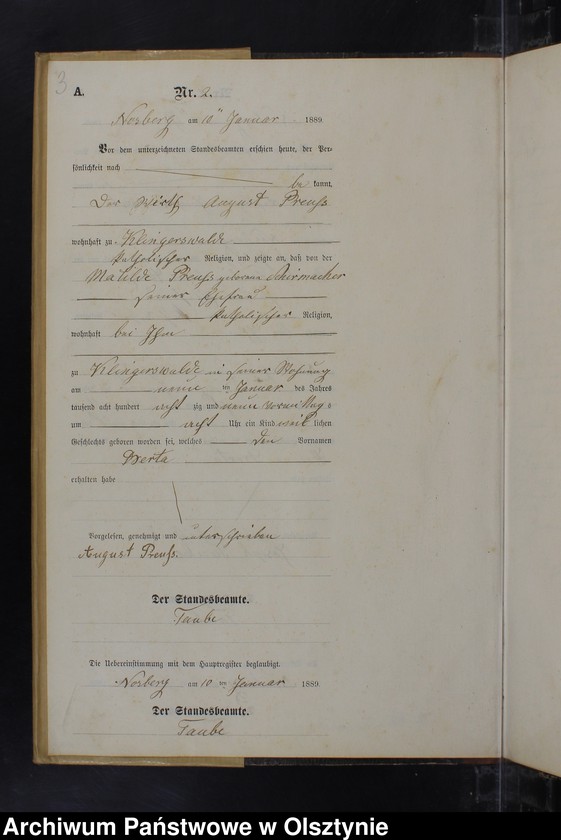 3
A. Nr. 2.
Norberg am 10ten Januar 1889.
Vor dem unterzeichneten Standesbeamten erschien heute, der Per-
sönlichkeit nach
be kannt,
Der Wirth August Preuß
wohnhaft zu Klingerswalde
katholischer Religion, und zeigte an, daß von der
Matilde Preuß geborene Schirmacher
seiner Ehefrau
katholischer Religion,
wohnhaft bei Ihm
zu Klingerswalde in seiner Wohnung
am neun ten Januar des Jahres
tausend acht hundert acht zig und neun Vormittags
um acht Uhr ein Kind weib lichen
Geschlechts geboren worden sei, welches den Vornamen
Berta
erhalten habe
Vorgelesen, genehmigt und unterschrieben
August Preuß.
Der Standesbeamte.
Taube
Die Uebereinstimmung mit dem Hauptregister beglaubigt.
Norberg am 10 ten Januar 1889.
Der Standesbeamte.
Taube
Archiwum Państwowe w Olsztynie